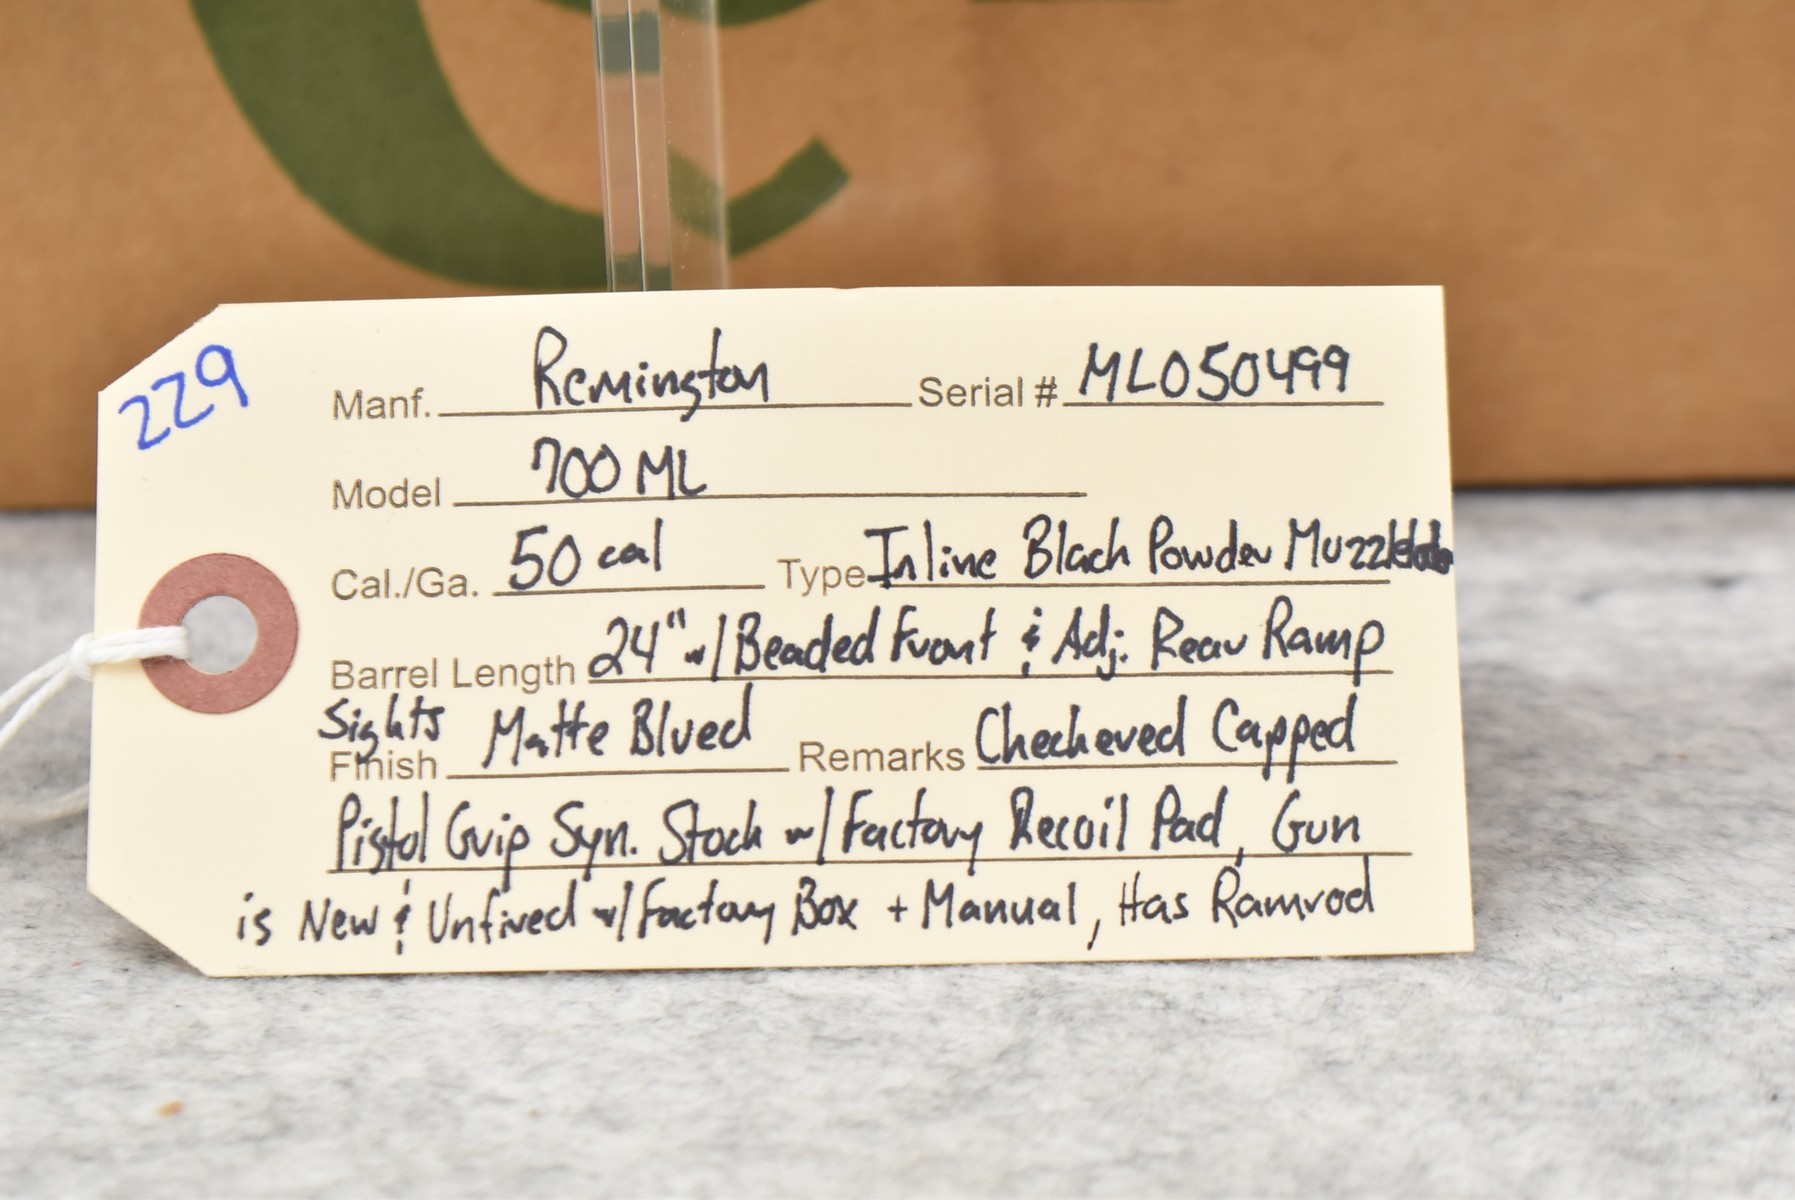 229
Manf. Remington Serial # ML050499
Model 700 ML
Cal./Ga. 50 cal Type Inline Black Powder Muzzleloader
Barrel Length 24" w/ Beaded Front & Adj. Rear Ramp
Sights
Finish Matte Blued Remarks Checkered Capped
Pistol Grip Syn. Stock w/ Factory Recoil Pad, Gun
is New & Unfired w/ Factory Box + Manual, Has Ramrod